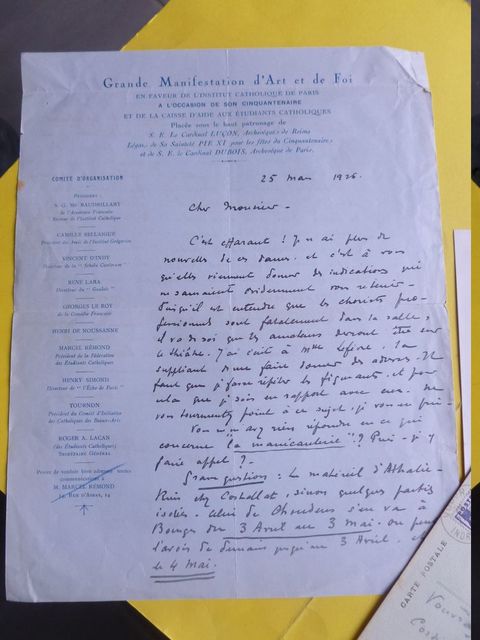 Grande Manifestation d'Art et de Foi
EN FAVEUR DE L'INSTITUT CATHOLIQUE DE PARIS
A L'OCCASION DE SON CINQUANTENAIRE
ET DE LA CAISSE D'AIDE AUX ÉTUDIANTS CATHOLIQUES
Placée sous le haut patronage de
S. E. Le Cardinal LUÇON, Archevêque de Reims
Légat de Sa Sainteté PIE XI pour les fêtes du Cinquantenaire
et de S. E. le Cardinal DUBOIS, Archevêque de Paris.
COMITÉ D'ORGANISATION
PRÉSIDENT :
S. G. Mgr BAUDRILLART
de l'Académie Française
Recteur de l'Institut Catholique
CAMILLE BELLAIGUE
Président des Amis de l'Institut Grégorien
VINCENT D'INDY
Directeur de la "Schola Cantorum"
RENÉ LARA
Directeur du "Gaulois"
GEORGES LE ROY
de la Comédie Française
HENRI DE NOUSSANNE
MARCEL RÉMOND
Président de la Fédération
des Étudiants Catholiques
HENRY SIMOND
Directeur de "l'Écho de Paris"
TOURNON
Président du Comité d'Initiative
des Catholiques des Beaux-Arts
ROGER A. LACAN
(des Étudiants Catholiques)
SECRÉTAIRE GÉNÉRAL
Prière de vouloir bien adresser toutes
communications à
M. MARCEL RÉMOND
61, Rue d'Assas, 24
25 mars 1926.
Cher Monsieur -
C'est effarant ! Je n'ai plus de
nouvelle de ces dames. et c'est à vous
qu'elles viennent donner des indications qui
ne sauraient évidemment vous retenir -
Puisqu'il est entendu que les choristes pro-
fessionnels sont fatalement dans la salle,
il va de soi que les amateurs devront être sur
le théâtre. J'ai écrit à Melle Lefèvre. la
suppliant de me faire donner des adresses. Il
faut que je fasse répéter les figurants. et pour
cela que je sois en rapport avec eux. ne
vous tourmentez point à ce sujet, je vous en prie -
Vous n'avez rien répondu en ce qui
concerne "la manicanterie" ? Puis-j'y
faire appel ? -
Grave question : Le matériel d'Athalie -
Rien chez Costallat, sinon quelques parties
isolées. Celui de Choudens s'en va à
Bourges du 3 Avril au 3 mai. On peut
l'avoir de demain jusqu'au 3 Avril.
le 4 Mai.
CARTE POSTALE